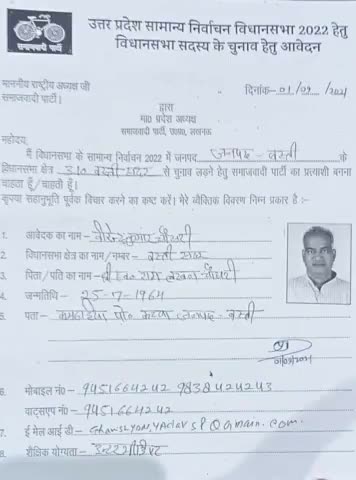 समाजवादी पार्टी
उत्तर प्रदेश सामान्य निर्वाचन विधानसभा 2022 हेतु
विधानसभा सदस्य के चुनाव हेतु आवेदन
माननीय राष्ट्रीय अध्यक्ष जी
समाजवादी पार्टी।
दिनांक- 01/09/2021
द्वारा
मा0 प्रदेश अध्यक्ष
समाजवादी पार्टी, उ0प्र0, लखनऊ
महोदय,
मैं विधानसभा के सामान्य निर्वाचन 2022 में जनपद जनपद - बस्ती के
विधानसभा क्षेत्र 310 बस्ती सदर से चुनाव लड़ने हेतु समाजवादी पार्टी का प्रत्याशी बनना
चाहता हूँ/चाहती हूँ।
कृपया सहानुभूति पूर्वक विचार करने का कष्ट करें। मेरे वैयक्तिक विवरण निम्न प्रकार है :-
1. आवेदक का नाम - वीरेन्द्र कुमार चौधरी
2. विधानसभा क्षेत्र का नाम/नम्बर- बस्ती सदर
3. पिता/पति का नाम- स्व0 राम लखन चौधरी
4. जन्मतिथि - 25-7-1964
5. पता- पो0 जनपद - बस्ती
6. मोबाइल नं0- 9451664242 9838424243
वाट्सएप नं0- 9451664242
7. ई मेल आई डी-
8. शैक्षिक योग्यता- इन्टरमीडिएट